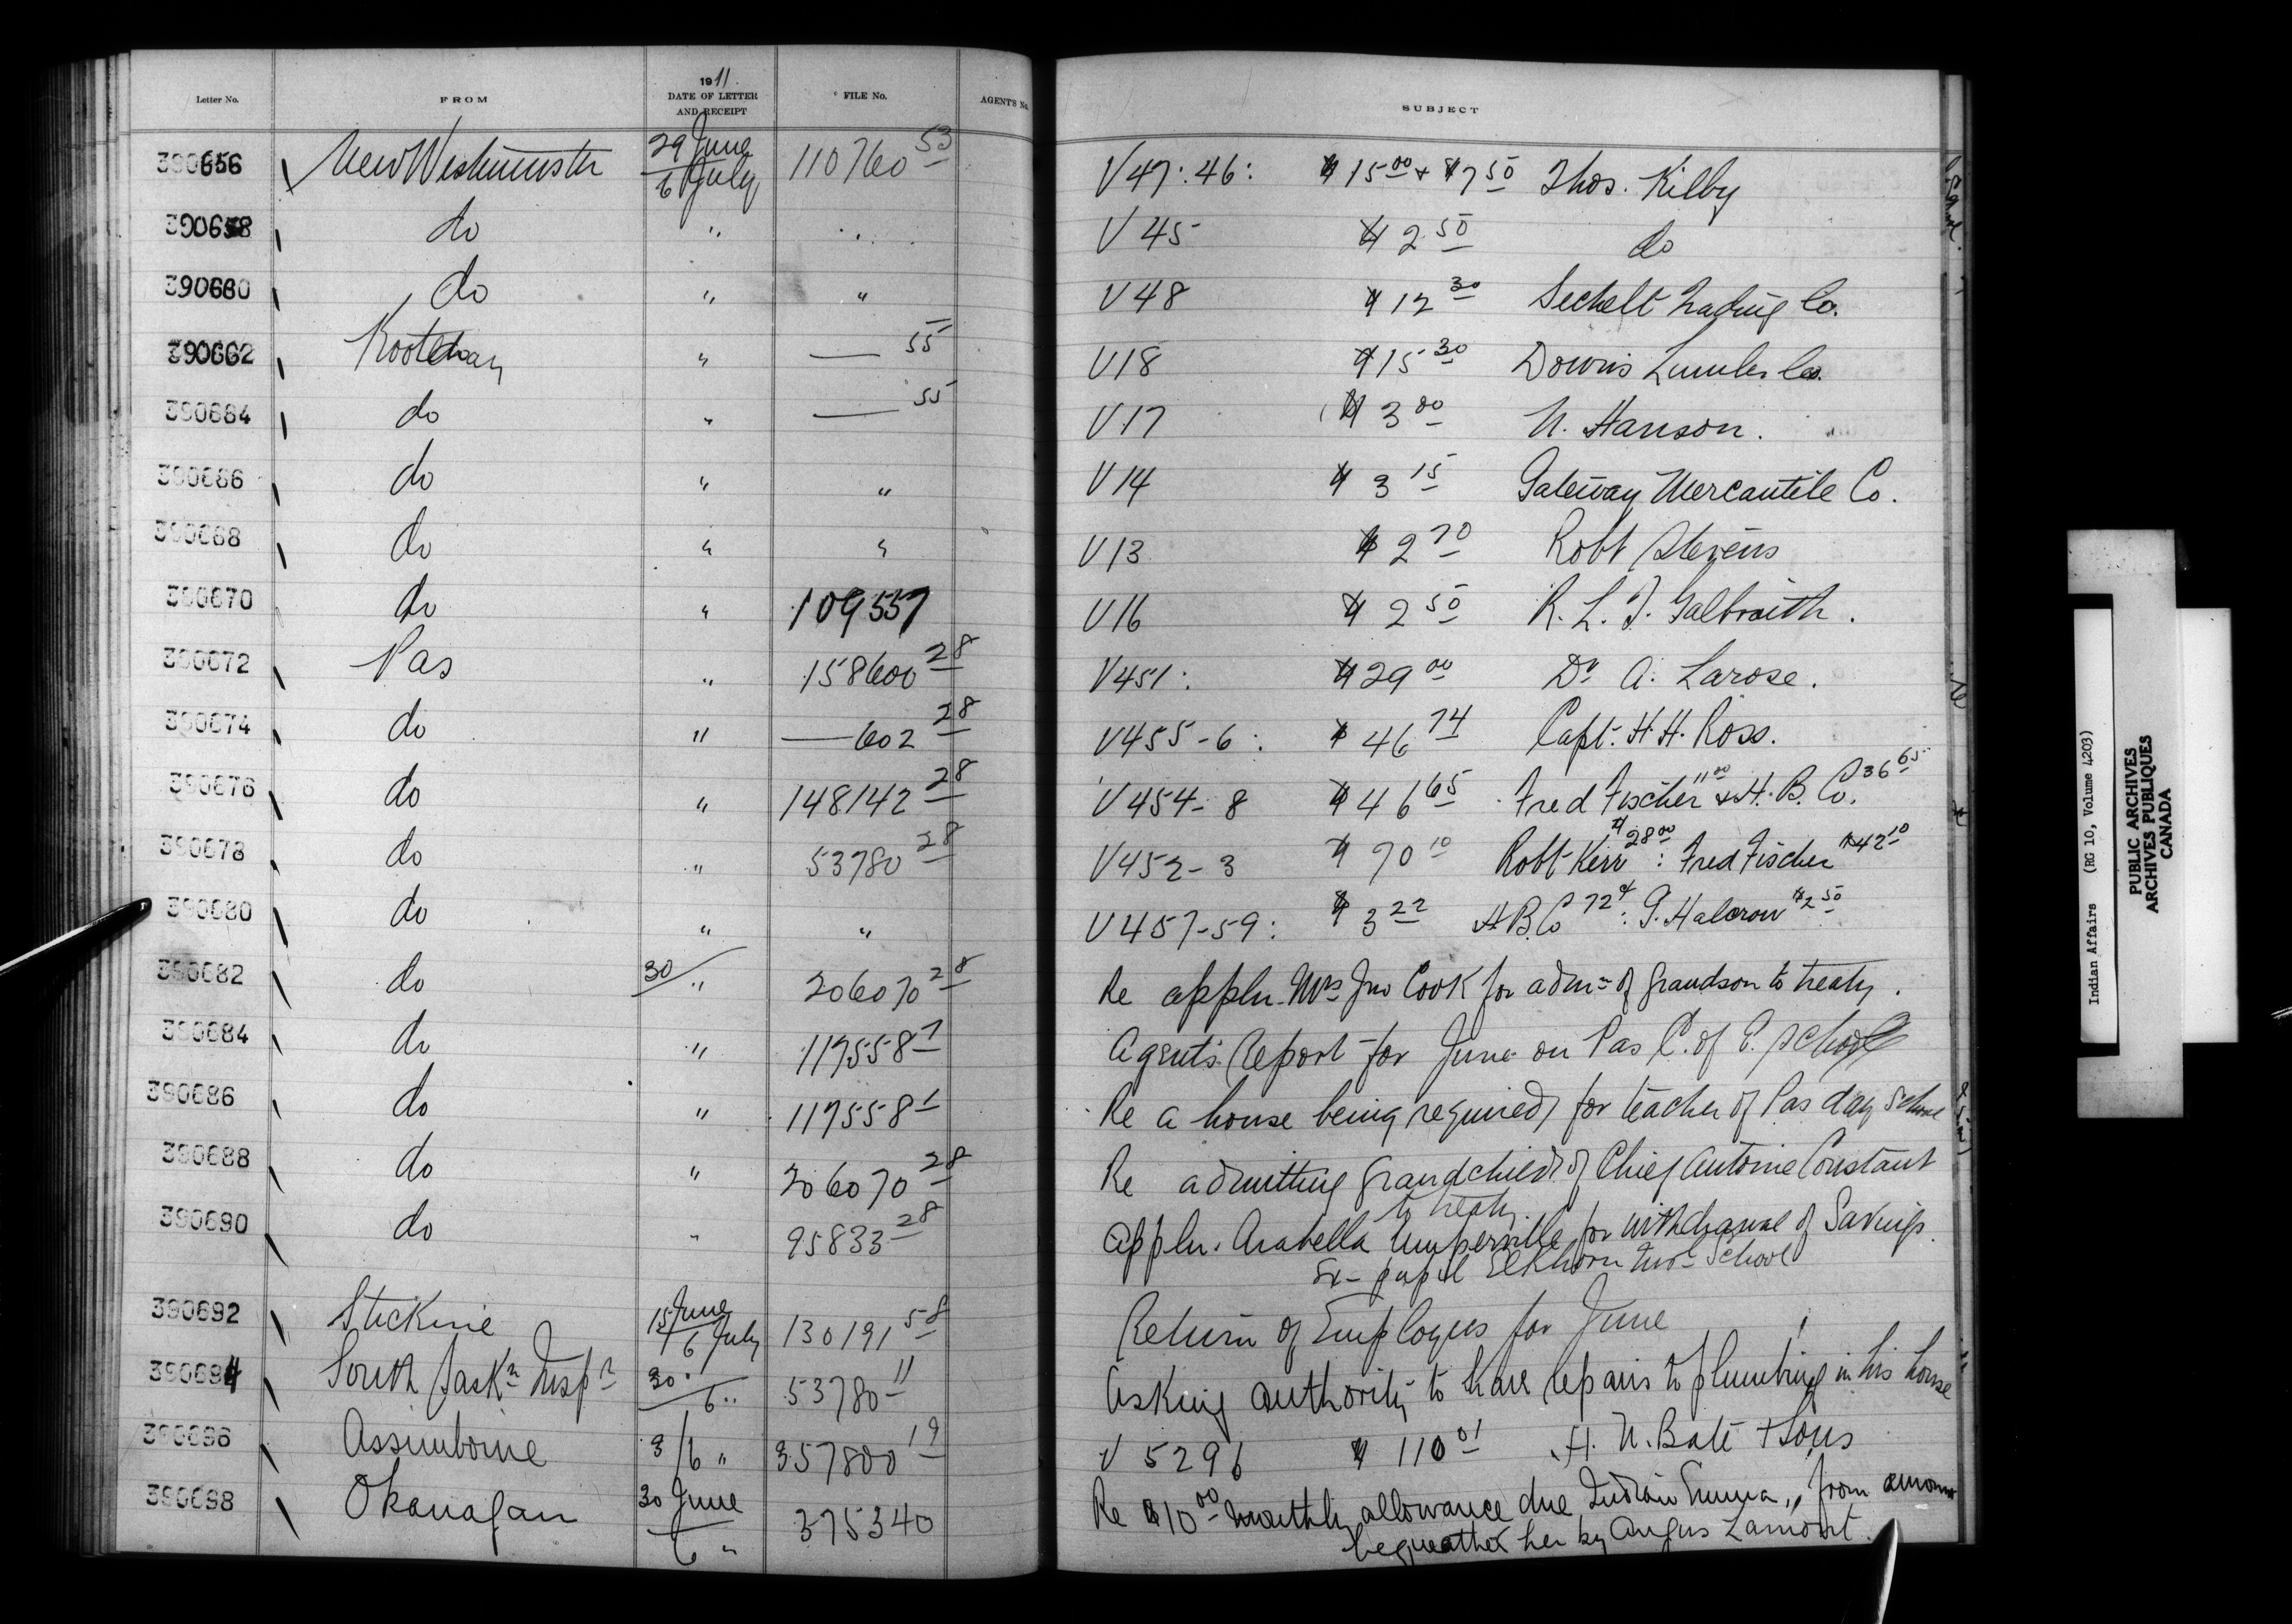 Letter No. FROM 1911 DATE OF LETTER AND RECEIPT FILE No. AGENT'S No. SUBJECT
390656 New Westminster 29 June 6 July 110760 53 V47:46: $15 00 + $7 50 Thos. Kilby
390658 do " " V 45 $2 50 do
390660 do " " V 48 $12 30 Sechelt Trading Co.
390662 Kootenay " — 55 V18 $15 30 Downs Lumber Co.
390664 do " — 55 V17 $3 00 N. Hanson.
390666 do " " V14 $3 15 Gateway Mercantile Co.
390668 do " " V13 $2 70 Robt Stevens
390670 do " 109557 V16 $2 50 R. L. T. Galbraith.
390672 Pas " 158600 28 V451: $29 00 Dr A. Larose.
390674 do " —602 28 V455-6: $46 74 Capt. H. H. Ross.
390676 do " 148142 28 V454-8 $46 65 Fred Fischer 11 00 & H. B. Co. 36 65
390678 do " 53780 28 V452-3 $70 10 Robt Kerr $28 00: Fred Fischer $42 10
390680 do " " V457-59: $3 22 H B. Co 72¢: G. Halcrow $2 50
390682 do 30/" 206070 28 Re appln. Mrs Jno Cook for admn of grandson to treaty.
390684 do " 117558-1 Agent's Report for June on Pas C. of E. School
390686 do " 117558-1 Re a house being required for teacher of Pas day School
390688 do " 206070 28 Re admitting grandchild of Chief Antoine Constant
to treaty.
390690 do " 95833 28 Appln. Arabella for withdrawal of Savings.
Ex-pupil Elkhorn School
390692 Stickine 15 June 6 July 130191 58 Return of Employees for June
390694 South Saskn Inspr 30 " 6 " 53780-11 Asking authority to have repairs to plumbing in his house
390696 Assiniboine 3/6 " 357800 19 V 5296 $110 01 H. N. Bate & Sons
390698 Okanagan 30 June 6 " 375340 Re $10 00 monthly allowance due Indian Emma, from amount
bequeathed her by Angus Lamont.
Indian Affairs (RG 10, Volume 4203)
PUBLIC ARCHIVES
ARCHIVES PUBLIQUES
CANADA